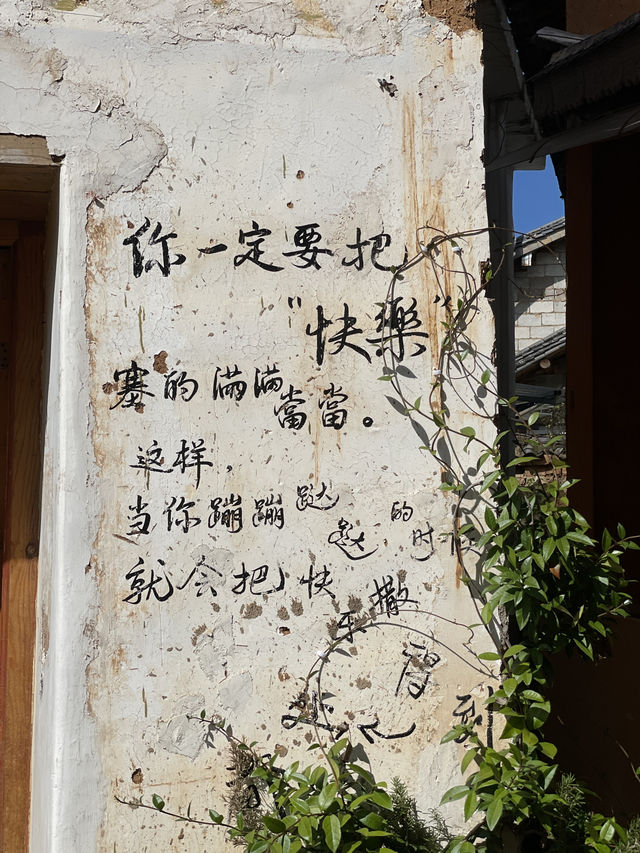 你一定要把
"快樂"
塞的满满當當。
这样，
当你蹦蹦跶跶的时候
就会把快乐撒得到处